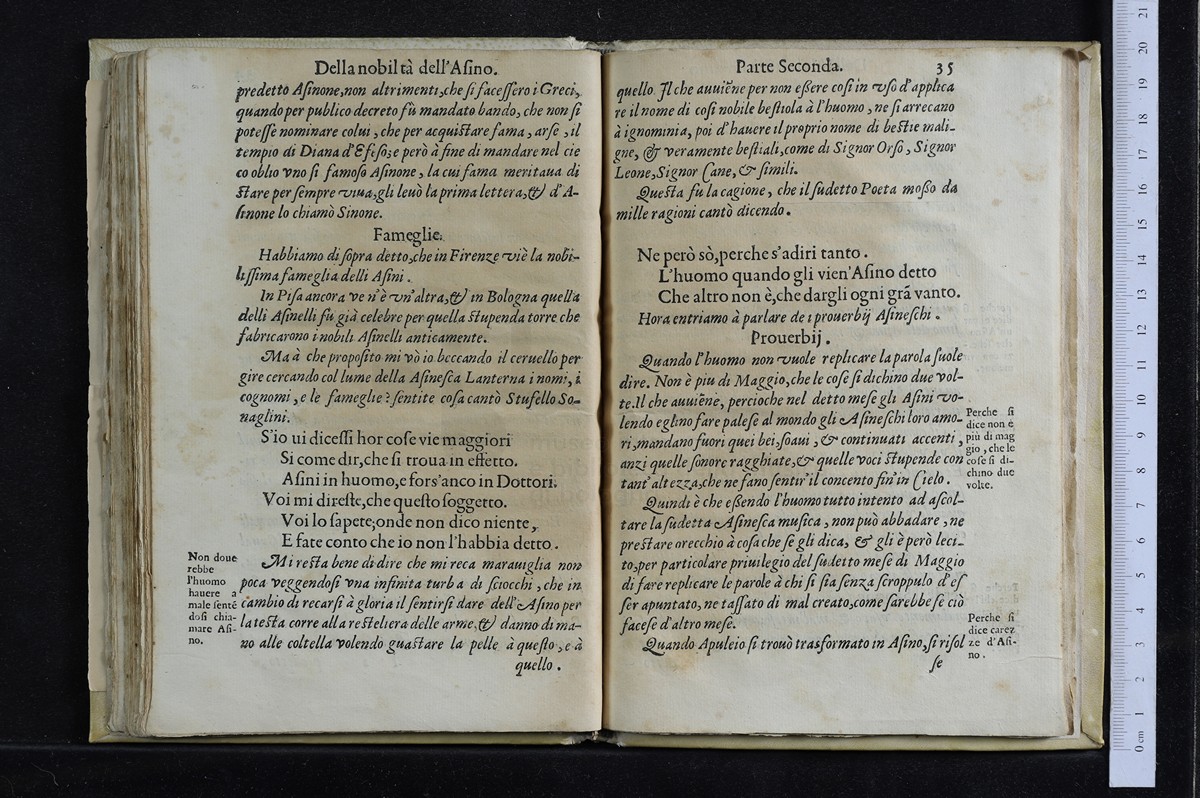 Della nobiltà dell'Aſino.
predetto Aſinone, non altrimenti, che ſi faceſſero i Greci,
quando per publico decreto fù mandato bando, che non ſi
poteſſe nominare colui, che per acquiſtare fama, arſe, il
tempio di Diana d'Efeſo; e però à fine di mandare nel cie
co oblio vno ſi famoſo Aſinone, la cui fama meritaua di
ſtare per ſempre viua, gli leuò la prima lettera, & d'A-
ſinone lo chiamò Sinone.
Fameglie.
Habbiamo di ſopra detto, che in Firenze v'iè la nobi-
liſſima fameglia delli Aſini.
In Piſa ancora ve n'è vn'altra, & in Bologna quella
delli Aſinelli fù già celebre per quella ſtupenda torre che
fabricarono i nobili Aſinelli anticamente.
Ma à che propoſito mi vò io beccando il ceruello per
gire cercando col lume della Aſineſca Lanterna i nomi, i
cognomi, e le fameglie? ſentite coſa cantò Stufello So-
naglini.
S'io ui diceſſi hor coſe vie maggiori
Si come dir, che ſi troua in effetto.
Aſini in huomo, e fors'anco in Dottori.
Voi mi direſte, che queſto ſoggetto.
Voi lo ſapete; onde non dico niente,
E fate conto che io non l'habbia detto.
Mi reſta bene di dire che mi reca marauiglia non
poca veggendoſi vna infinita turba di ſciocchi, che in
cambio di recarſi à gloria il ſentirſi dare dell'Aſino per
la teſta corre alla reſteliera delle arme, & danno di ma-
no alle coltella volendo guaſtare la pelle à queſto, e à
quello.
Non doue
rebbe
l'huomo
hauere a
male ſenté
doſi chia-
mare Aſi-
no.
Parte Seconda. 35
quello. Il che auuiẽne per non eßere coſi in vſo d'applica
re il nome di coſi nobile beſtiola à l'huomo, ne ſi arrecano
à ignominia, poi d'hauere il proprio nome di beſtie mali-
gne, & veramente beſtiali, come di Signor Orſo, Signor
Leone, Signor Cane, & ſimili.
Queſta fù la cagione, che il ſudetto Poeta moßo da
mille ragioni cantò dicendo.
Ne però sò, perche s'adiri tanto.
L'huomo quando gli vien'Aſino detto
Che altro non è, che dargli ogni grã vanto.
Hora entriamo à parlare de i prouerbij Aſineſchi.
Prouerbij.
Quando l'huomo non vuole replicare la parola ſuole
dire. Non è piu di Maggio, che le coſe ſi dichino due vol-
te. Il che auuiẽne, percioche nel detto meſe gli Aſini vo-
lendo eglino fare paleſe al mondo gli Aſineſchi loro amo-
ri, mandano fuori quei bei, ſoaui, & continuati accenti,
anzi quelle ſonore ragghiate, & quelle voci ſtupende con
tant'altezza, che ne fano ſentir'il concento fin'in Cielo.
Quindi è che eßendo l'huomo tutto intento ad aſcol-
tare la ſudetta Aſineſca muſica, non può abbadare, ne
preſtare orecchio à coſa che ſe gli dica, & gli è però leci-
to, per particolare priuilegio del ſudetto meſe di Maggio
di fare replicare le parole à chi ſi ſia ſenza ſcroppulo d'eſ
ſer apuntato, ne taſſato di mal creato, come ſarebbe ſe ciò
faceſe d'altro meſe.
Quando Apuleio ſi trouò trasformato in Aſino, ſi riſol
ſe
Perche ſi
dice non è
più di mag
gio, che le
coſe ſi di-
chino due
volte.
Perche ſi
dice carez
ze d'Aſi-
no.
0 cm 1 2 3 4 5 6 7 8 9 10 11 12 13 14 15 16 17 18 19 20 21